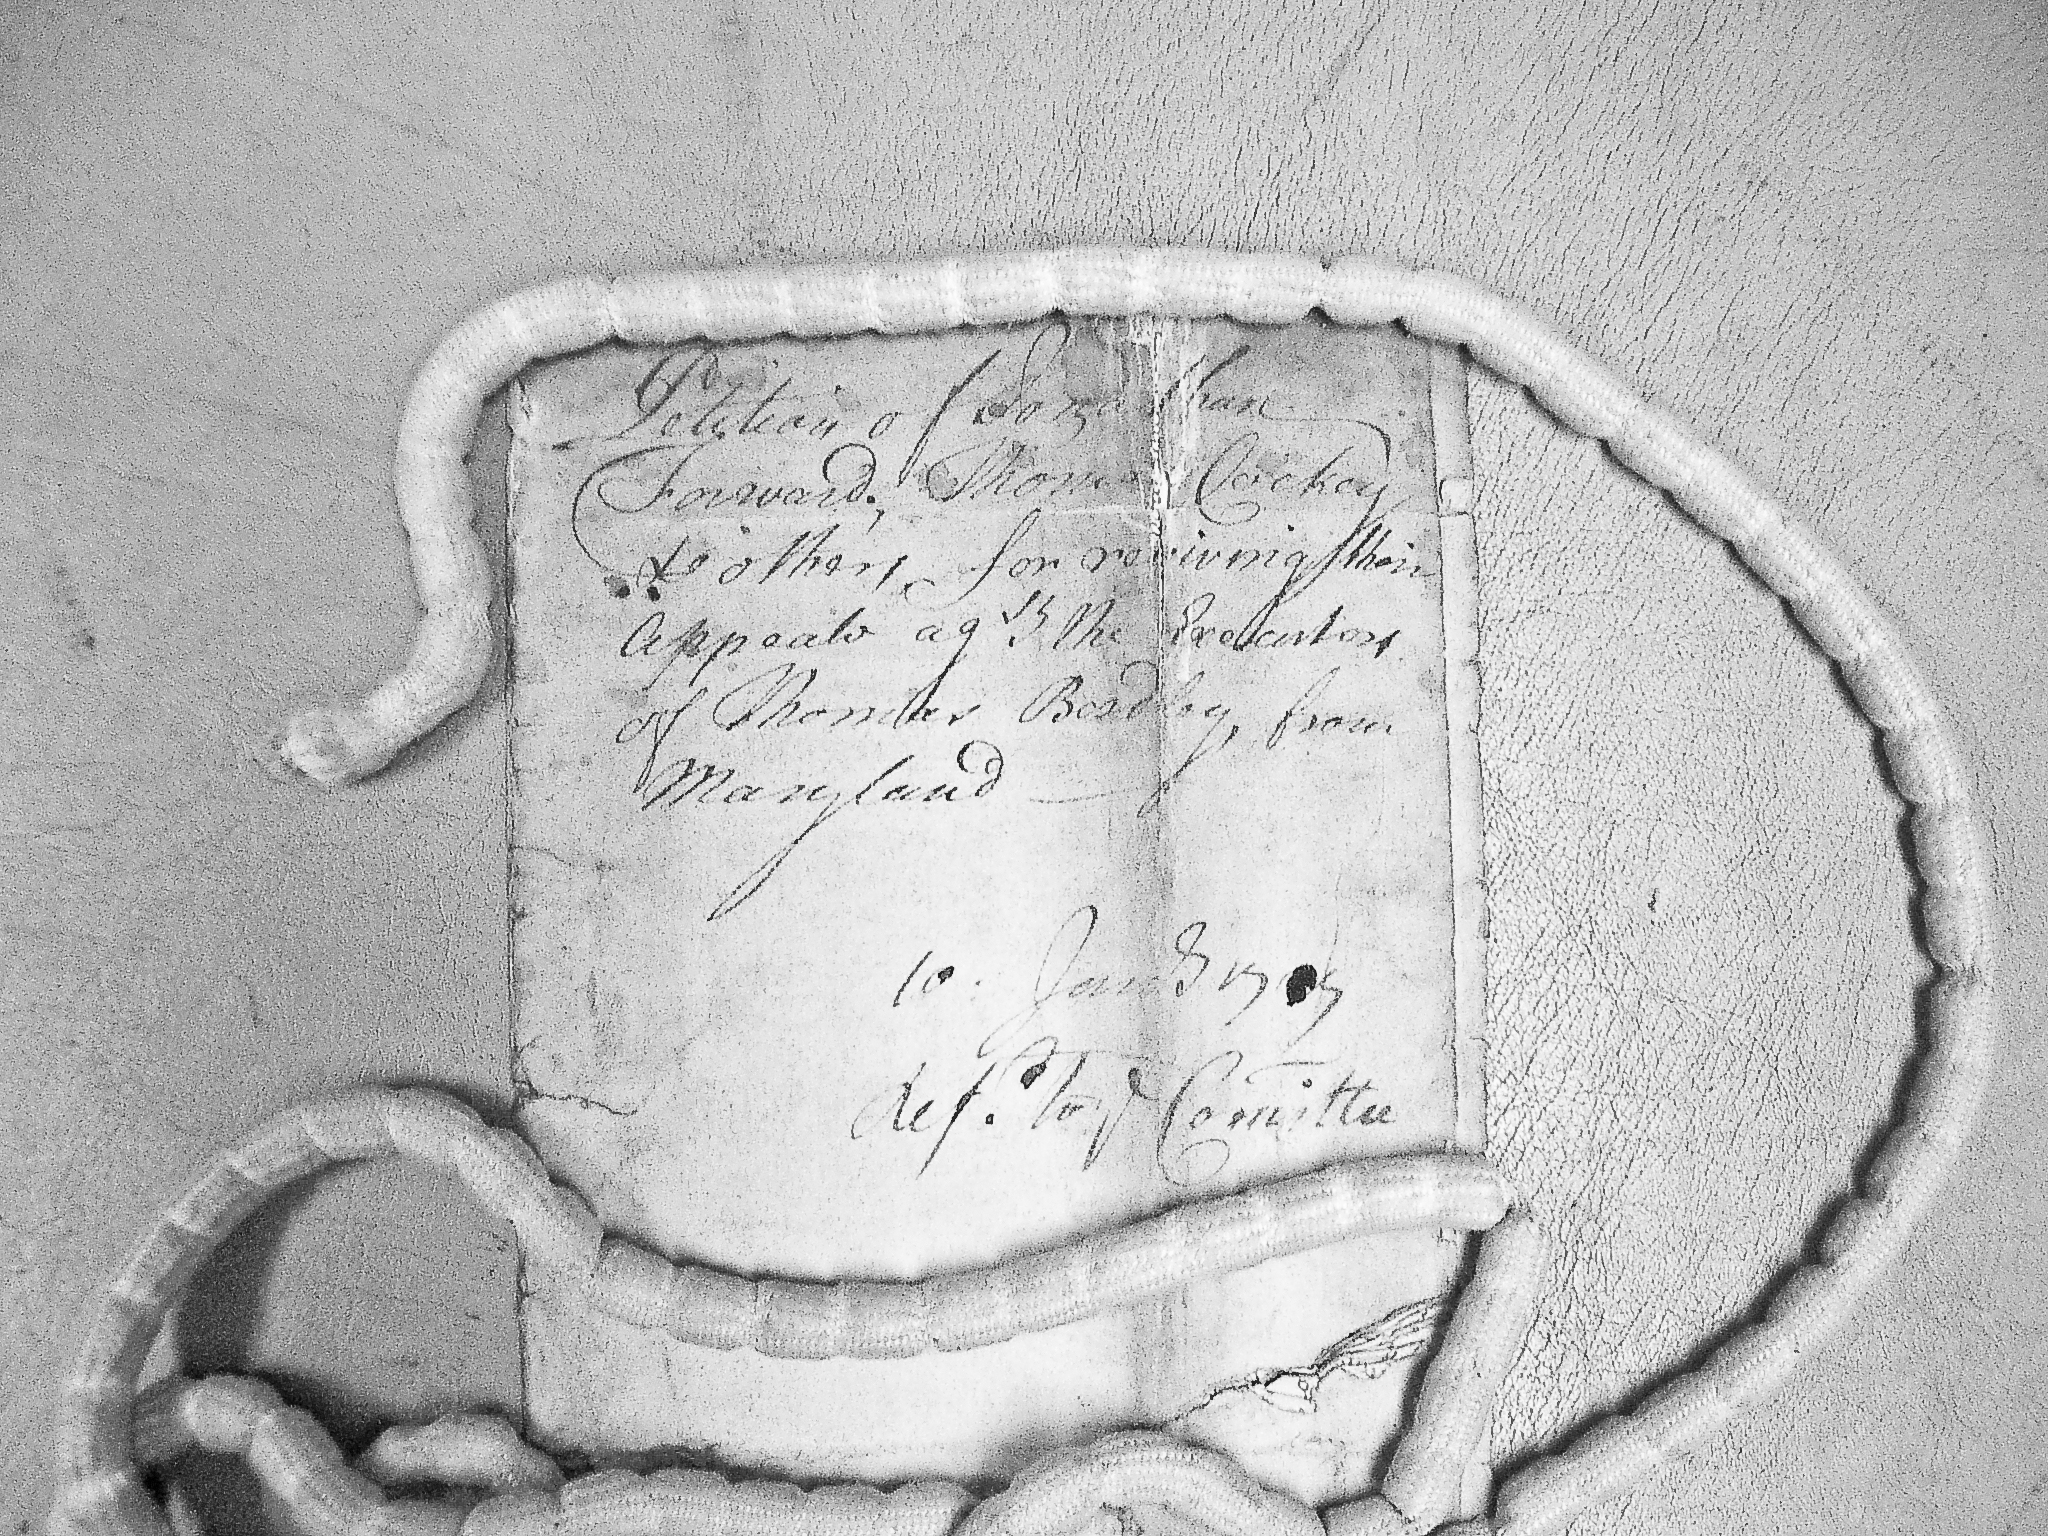 Petition of Jonathan
Forward, Thomas Cockey
& others, for reviving their
Appeals agst. the Executors
of Thomas Bordley, from
Maryland
10. Janry 17
ref. to ye Comittee